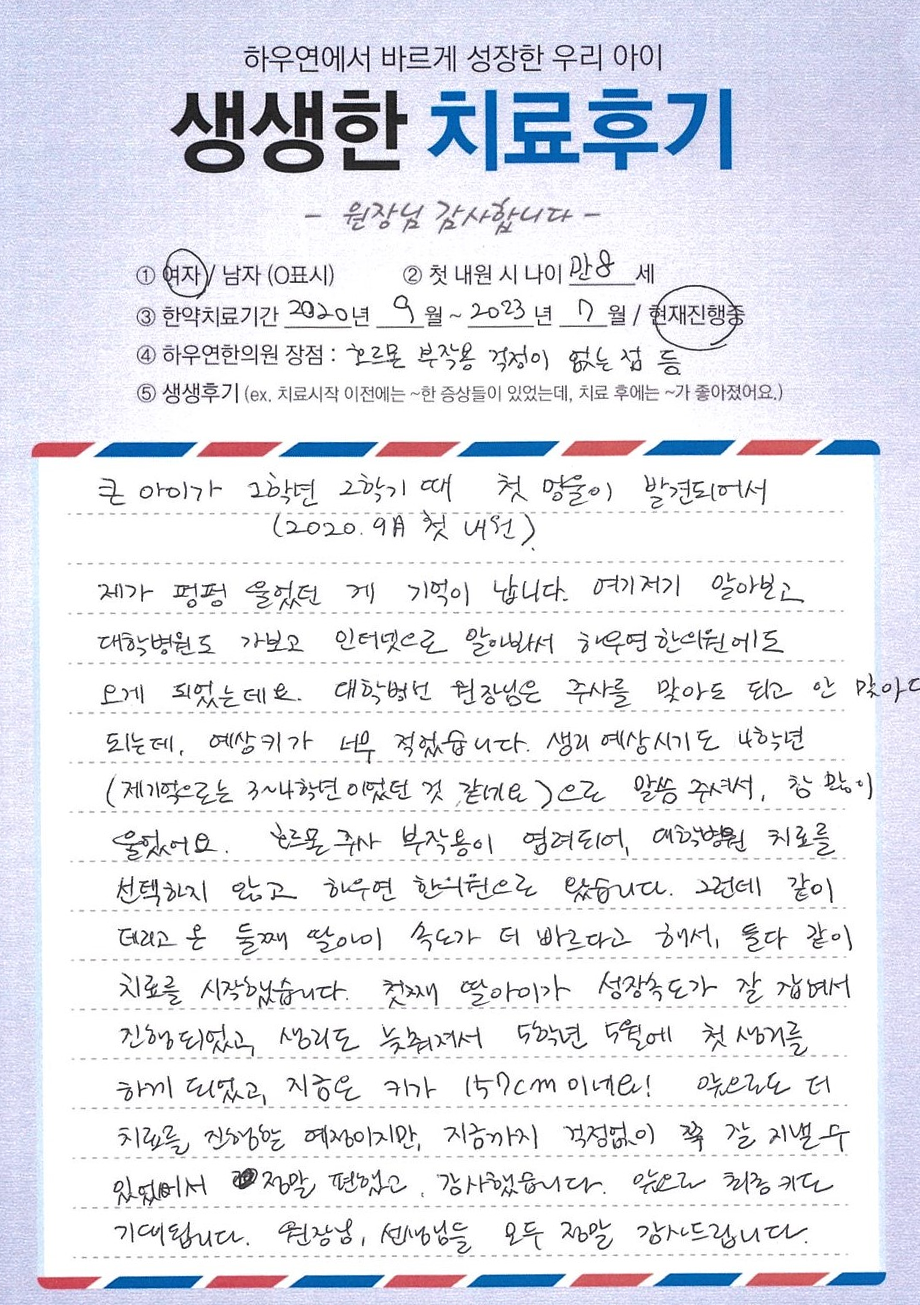 하우연에서 바르게 성장한 우리 아이
생생한 치료후기
- 원장님 감사합니다 -
① 여자 / 남자 (O표시) ② 첫 내원 시 나이 만8 세
③ 한약치료기간 2020년 9월 ~ 2023년 7월 / 현재진행중
④ 하우연한의원 장점 : 호르몬 부작용 걱정이 없는 점 등
⑤ 생생후기 (ex. 치료시작 이전에는 ~한 증상들이 있었는데, 치료 후에는 ~가 좋아졌어요.)
큰 아이가 2학년 2학기 때 첫 멍울이 발견되어서
(2020. 9月 첫 내원).
제가 펑펑 울었던 게 기억이 납니다. 여기저기 알아보고
대학병원도 가보고 인터넷으로 알아봐서 하우연한의원에도
오게 되었는데요. 대학병원 원장님은 주사를 맞아도 되고 안 맞아도
되는데, 예상키가 너무 적었습니다. 생리 예상시기도 4학년
(제기억으로는 3~4학년이었던 것 같네요)으로 말씀 주셔서, 참 많이
울었어요. 호르몬 주사 부작용이 염려되어, 대학병원 치료를
선택하지 않고 하우연 한의원으로 왔습니다. 그런데 같이
데리고 온 둘째 딸아이 속도가 더 빠르다고 해서, 둘다 같이
치료를 시작했습니다. 첫째 딸아이가 성장속도가 잘 잡혀서
진행되었고, 생리도 늦춰져서 5학년 5월에 첫 생리를
하게 되었고, 지금은 키가 157cm이네요! 앞으로도 더
치료를 진행할 예정이지만, 지금까지 걱정없이 쭉 잘 지낼 수
있었어서 정말 편했고, 감사했습니다. 앞으로 최종 키도
기대됩니다. 원장님, 선생님들 모두 정말 감사드립니다.